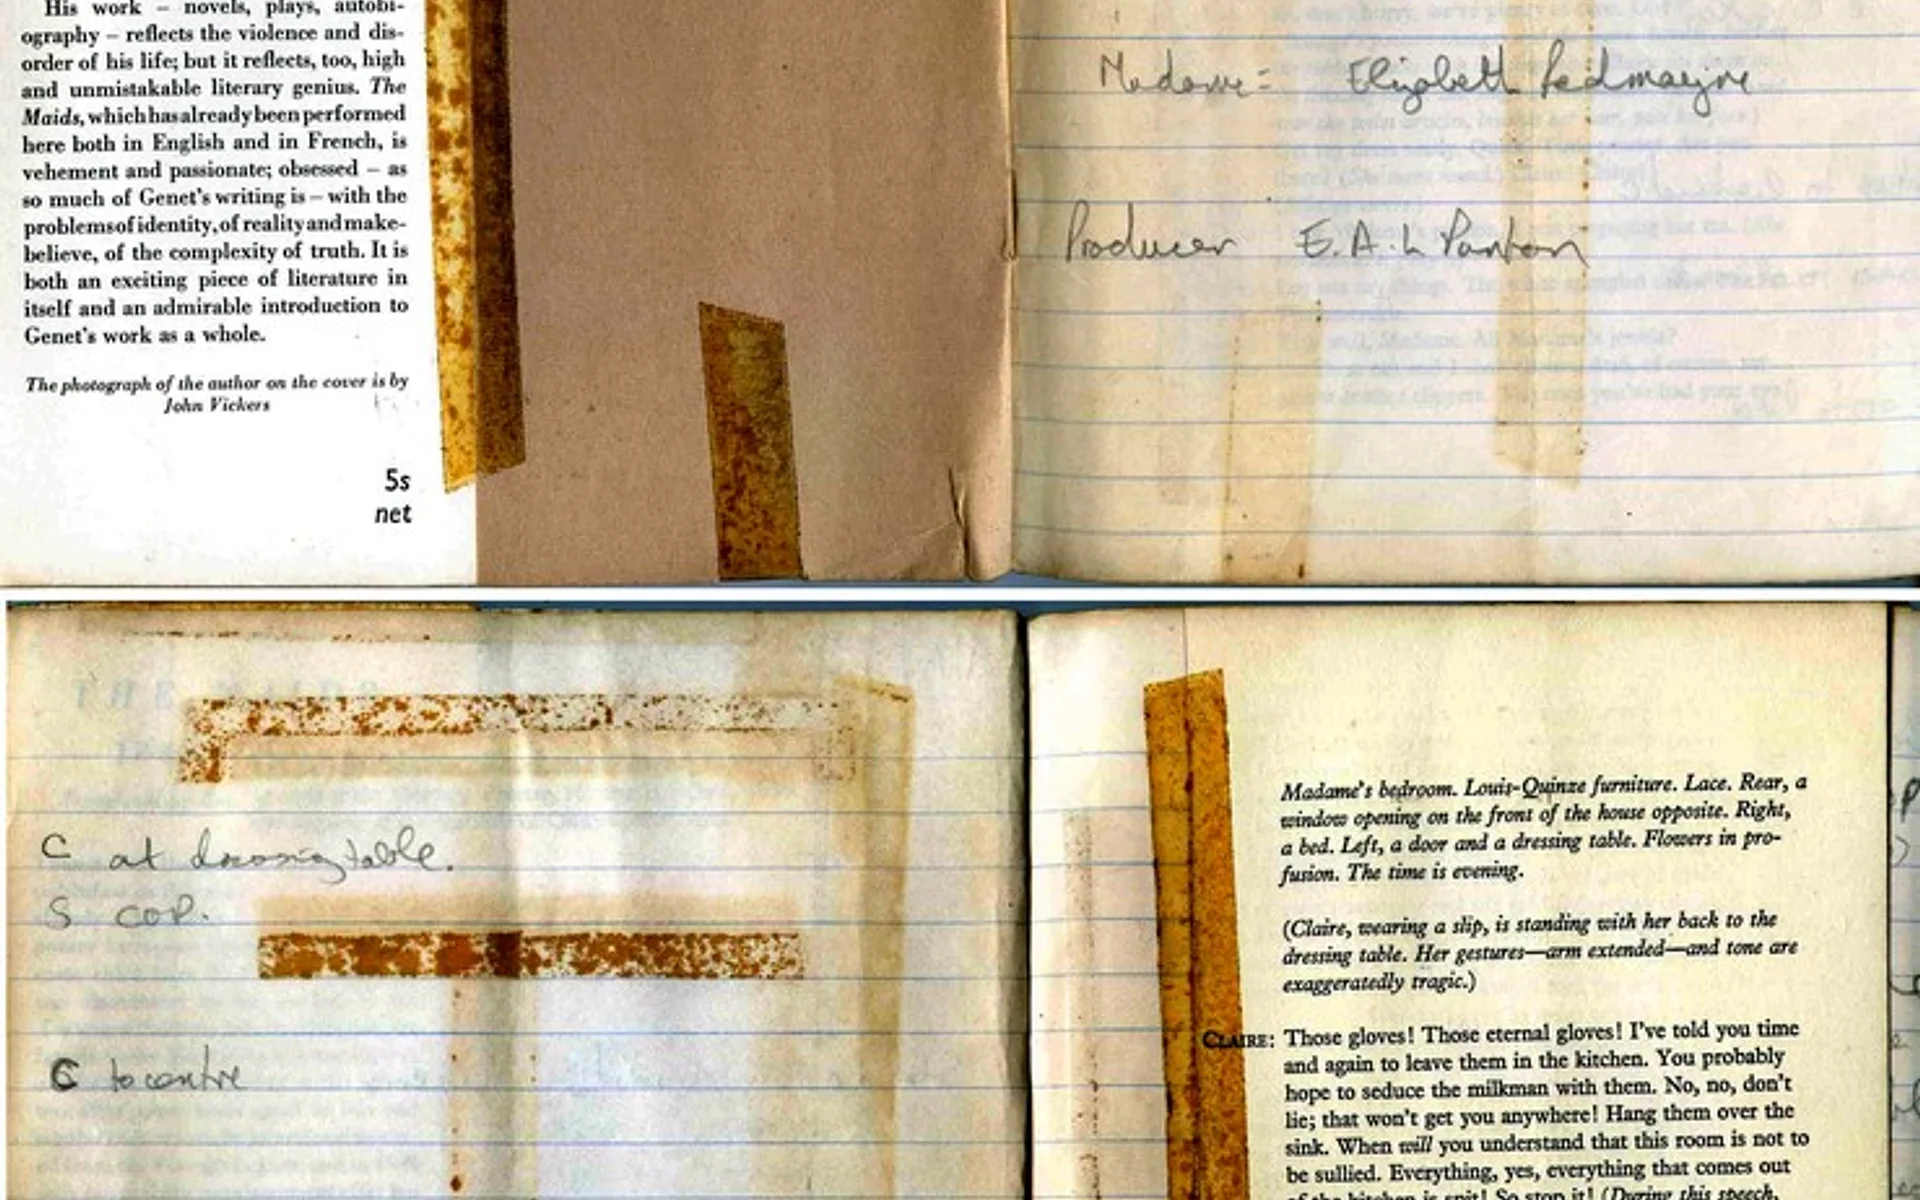 His work – novels, plays, autobi-
ography – reflects the violence and dis-
order of his life; but it reflects, too, high
and unmistakable literary genius. The
Maids, which has already been performed
here both in English and in French, is
vehement and passionate; obsessed – as
so much of Genet's writing is – with the
problems of identity, of reality and make-
believe, of the complexity of truth. It is
both an exciting piece of literature in
itself and an admirable introduction to
Genet's work as a whole.
The photograph of the author on the cover is by
John Vickers
5s
net
Madame: Elizabeth Redmayne
Producer E.A.L Panton
C at dressing table.
S COP.
C to centre
Madame's bedroom. Louis-Quinze furniture. Lace. Rear, a
window opening on the front of the house opposite. Right,
a bed. Left, a door and a dressing table. Flowers in pro-
fusion. The time is evening.
(Claire, wearing a slip, is standing with her back to the
dressing table. Her gestures—arm extended—and tone are
exaggeratedly tragic.)
CLAIRE: Those gloves! Those eternal gloves! I've told you time
and again to leave them in the kitchen. You probably
hope to seduce the milkman with them. No, no, don't
lie; that won't get you anywhere! Hang them over the
sink. When will you understand that this room is not to
be sullied. Everything, yes, everything that comes out
of the kitchen is spit! So stop it! (During this speech,